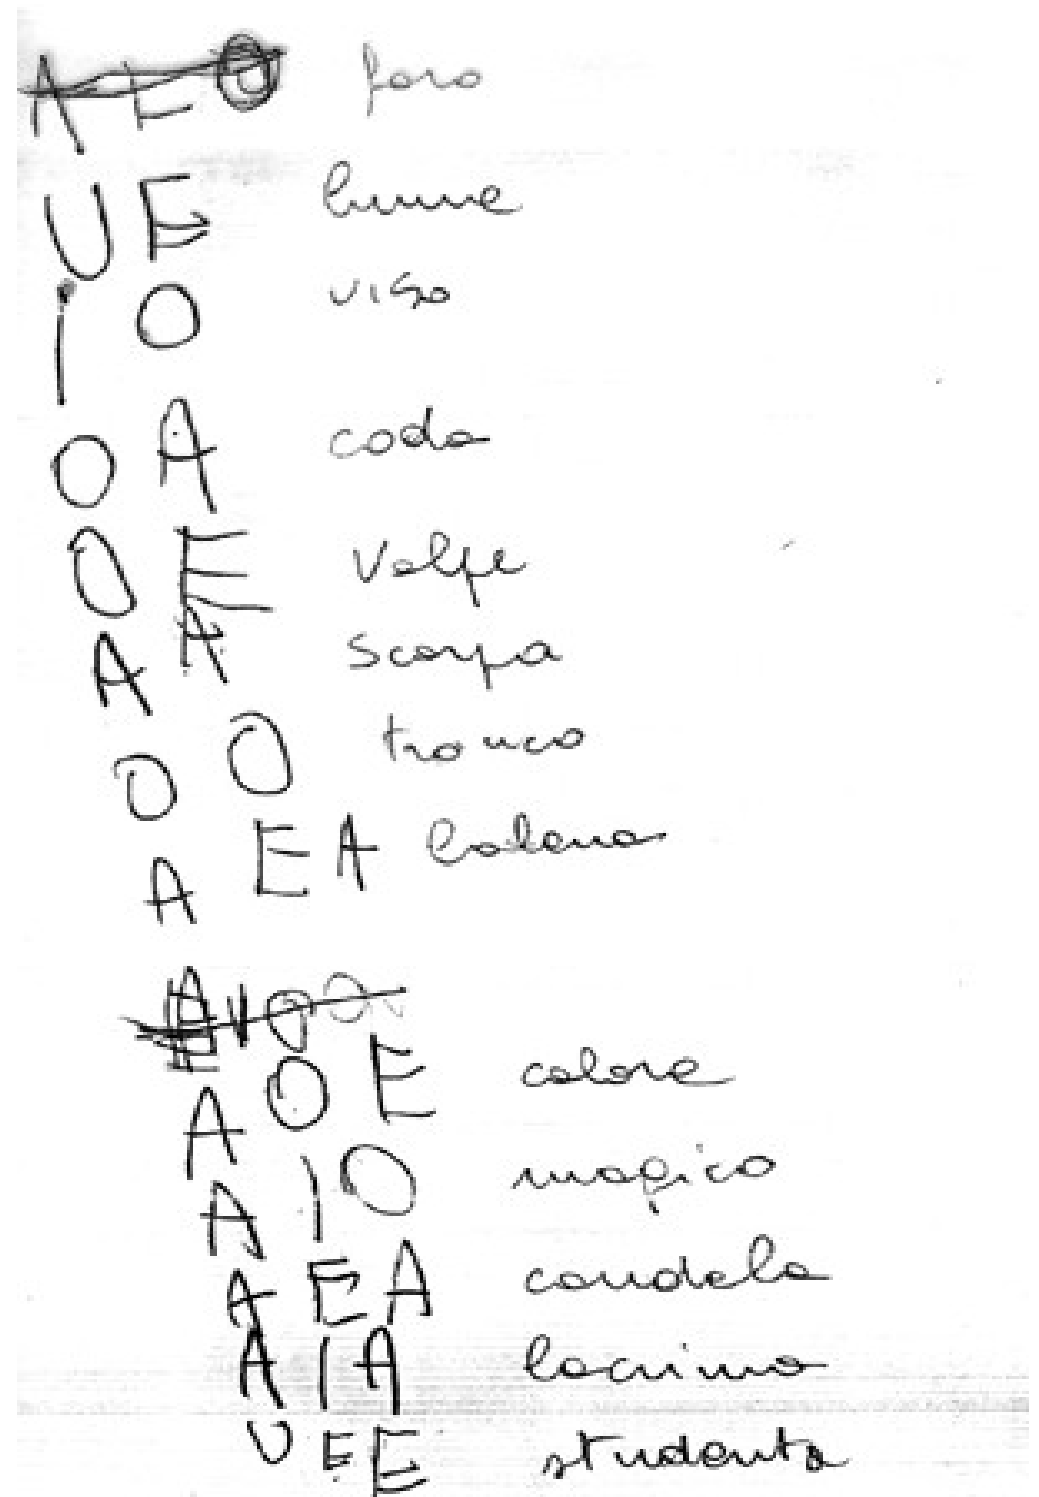 A E O faro
U E lume
i O viso
O A coda
O E Volpe
A A Scarpa
O O tronco
A E A balena
A O E calore
A I O magico
A E A candela
A I A lacrima
U E E studente